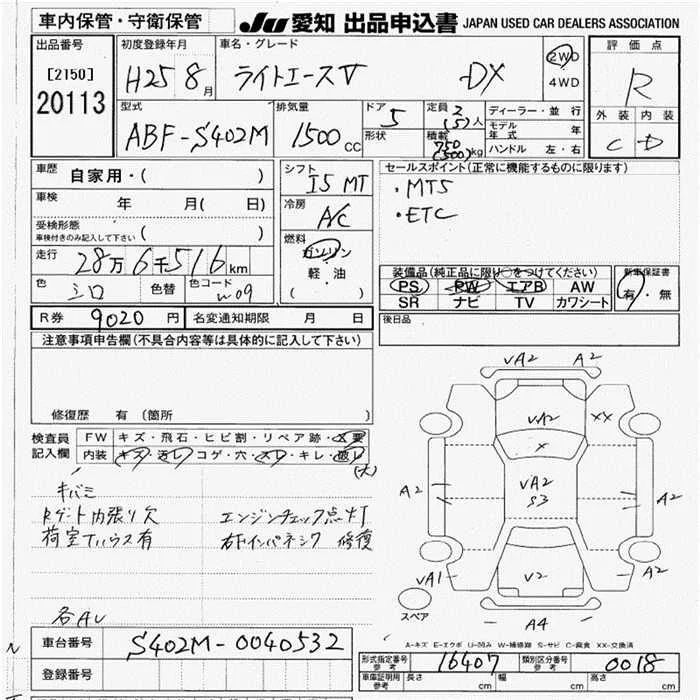 車内保管・守衛保管
JU 愛知 出品申込書 JAPAN USED CAR DEALERS ASSOCIATION
出品番号
[2150]
20113
初度登録年月
H25 8月
車名・グレード
ライトエースV DX
2WD
4WD
評価点
R
外装 内装
C D
型式
ABF-S402M
排気量
1500 cc
ドア
5
形状
定員 2
(5)人
積載
750
(500)kg
ディーラー・並行
モデル年式 年
ハンドル 左・右
車歴
自家用・( )
車検
年 月( 日)
受検形態
車検付きのみ記入して下さい ( )
走行
28万6千516km
色 シロ 色替 色コード W09
シフト
I5 MT
冷房
A/C
燃料
ガソリン
軽・油
( )
セールスポイント(正常に機能するものに限ります)
・MT5
・ETC
装備品(純正品に限り○をつけてください)
PS PW エアB AW
SR ナビ TV カワシート
新車保証書
有・無
R券 9020円 名変通知期限 月 日
後日品
注意事項申告欄(不具合内容等は具体的に記入して下さい)
修復歴 有 (箇所 )
検査員記入欄
FW キズ・飛石・ヒビ割・リペア跡・X要
内装 キズ・汚レ・コゲ・穴・スレ・キレ・破レ
(大)
キバミ
Rゲート内張り欠
荷室Tハウス有
エンジンチェック点灯
右F インパネシワ 修復
各AU
VA2 A2
VA2 XX
X
A2 VA2 A2
S3
VA1 V2 A2
スペア
A4
A-キズ E-エクボ U-凹み W-補修跡 S-サビ C-腐食 XX-交換済
車台番号 S402M-0040532
登録番号
形式指定番号 参考 16407 類別区分番号 参考 0018
車庫証明用 参考 長さ cm 幅 cm 高さ cm